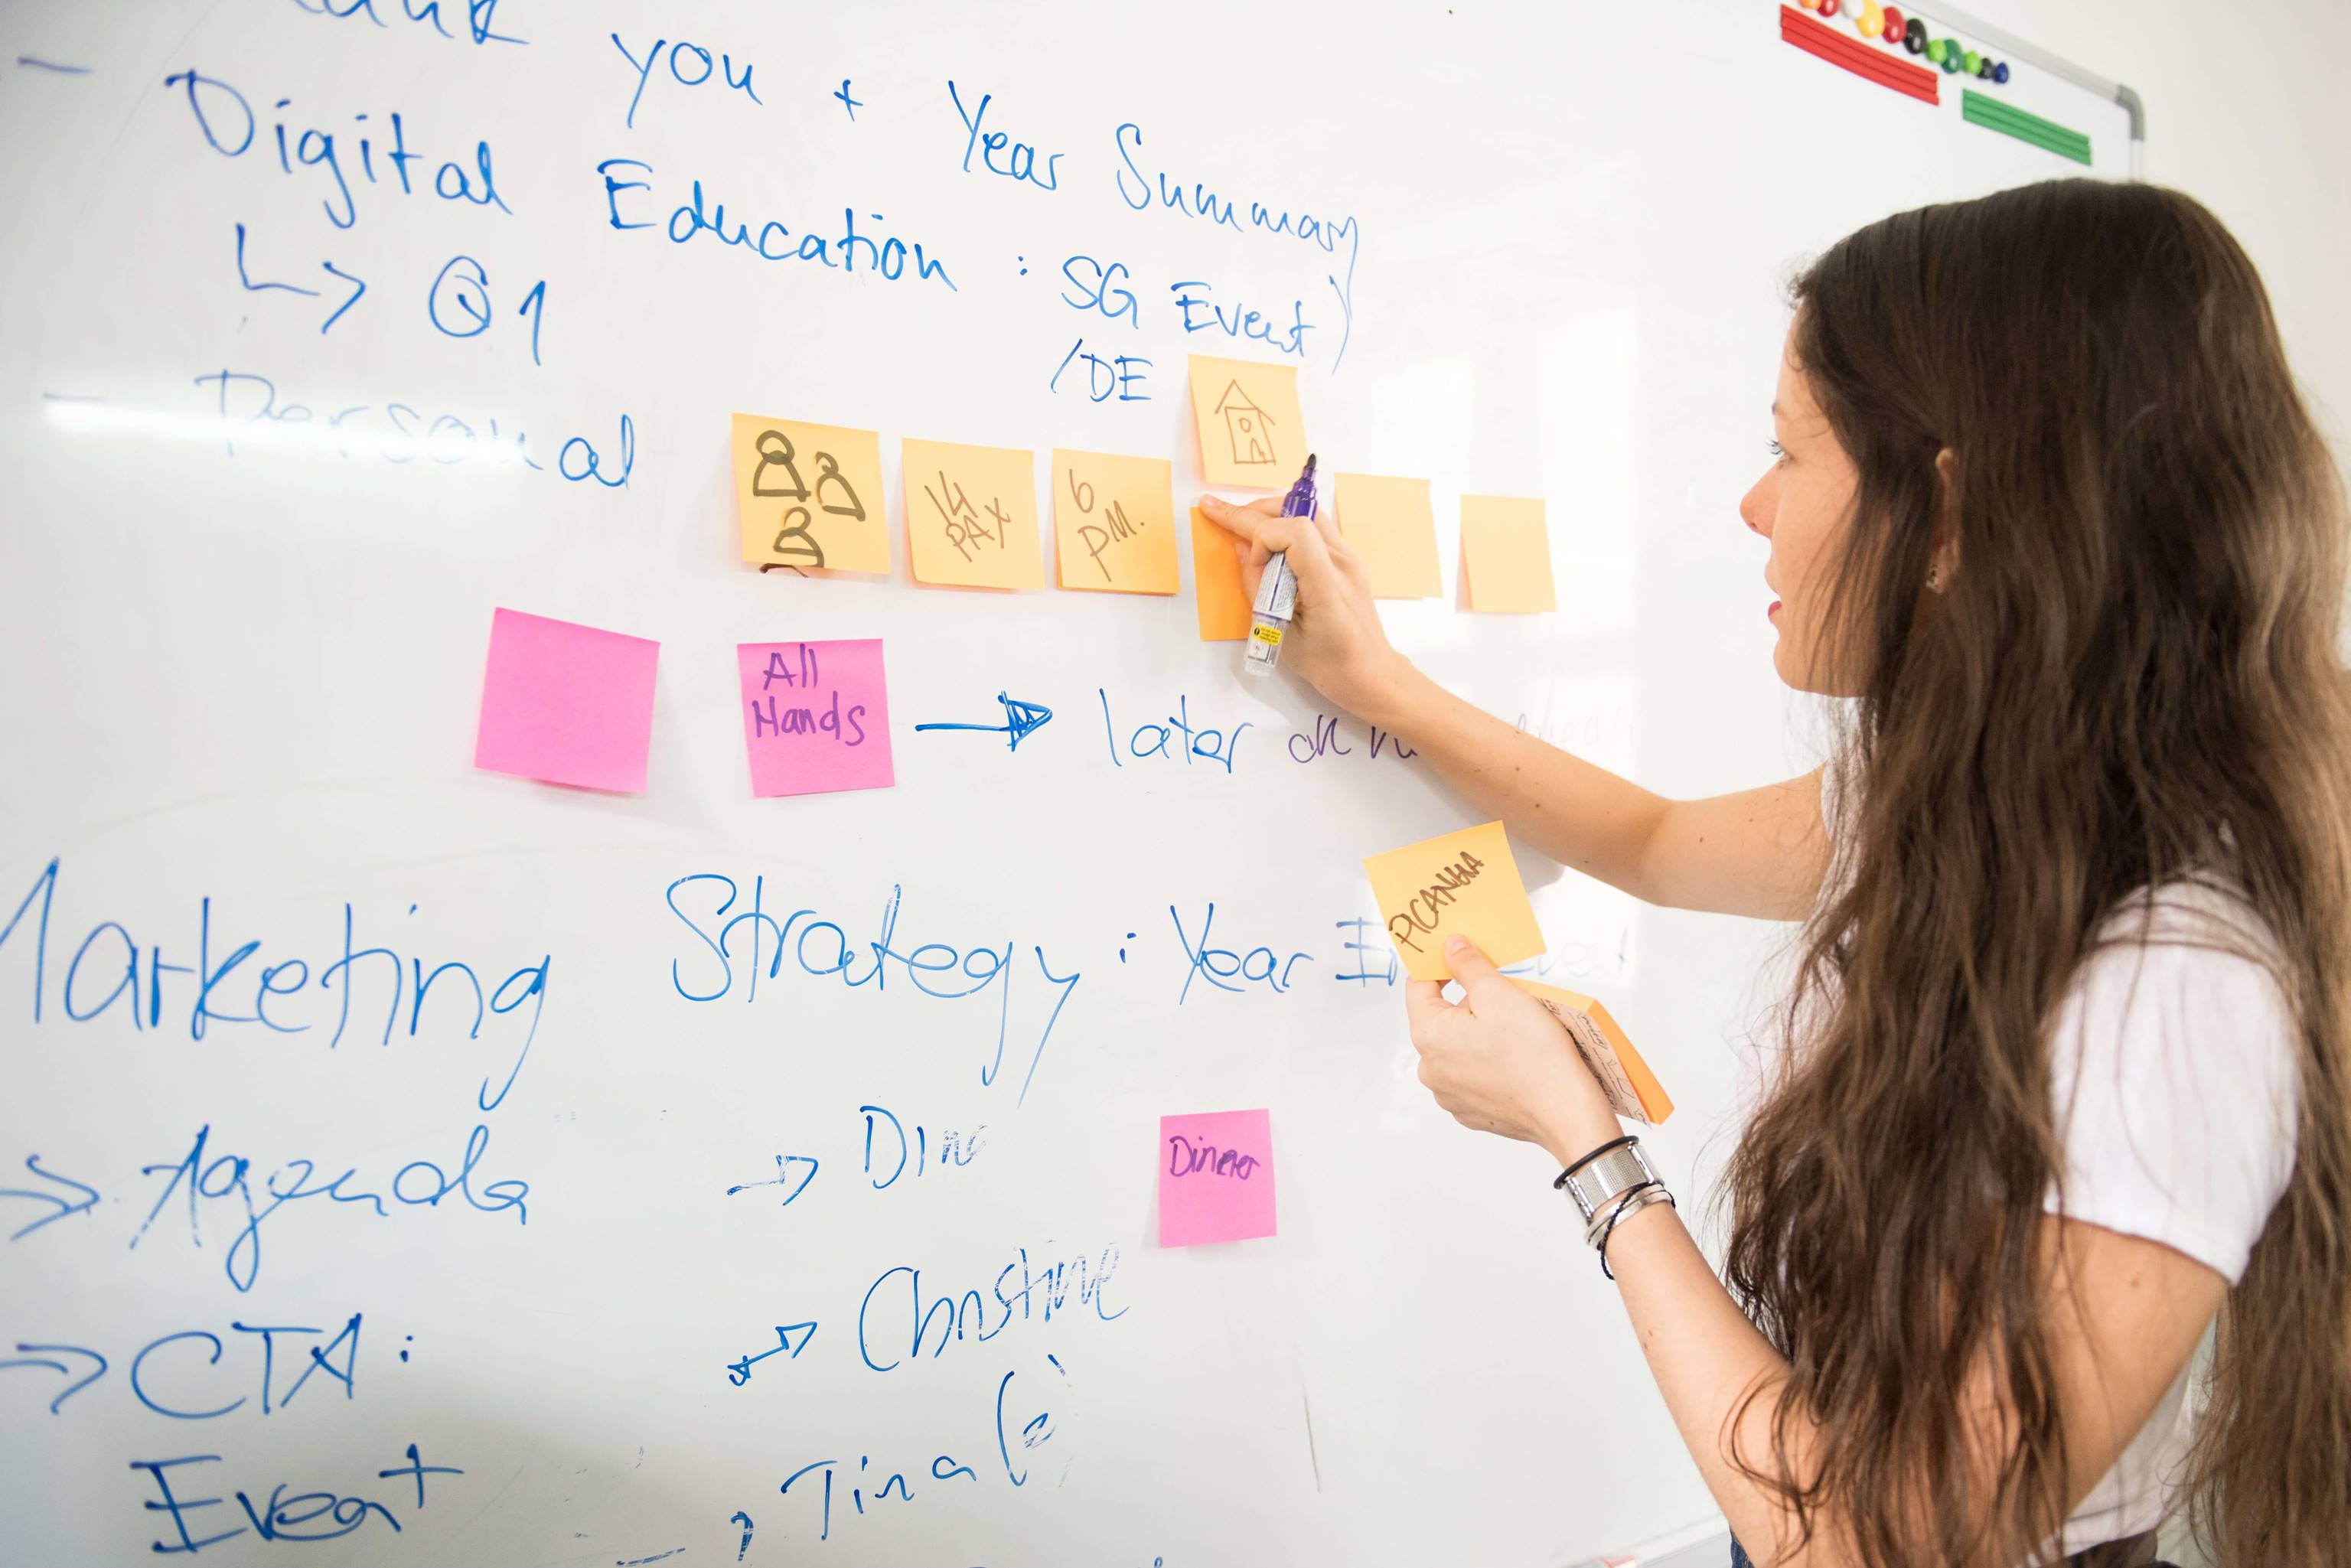 you + Year Summary
- Digital Education : SG Event)
/DE
↳ Q1
- Personal
14
PAX
6
PM.
All
Hands
→ later
PICANHA
Marketing Strategy : Year
→ Agenda
→ Din
Dinner
→ CTA :
→ Christine
Event
Tina (